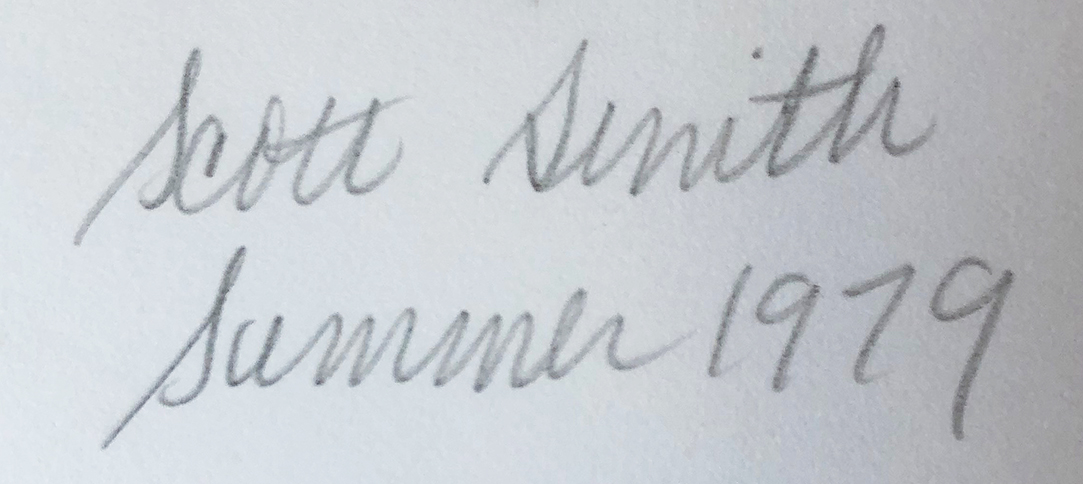 Scott Smith
Summer 1979